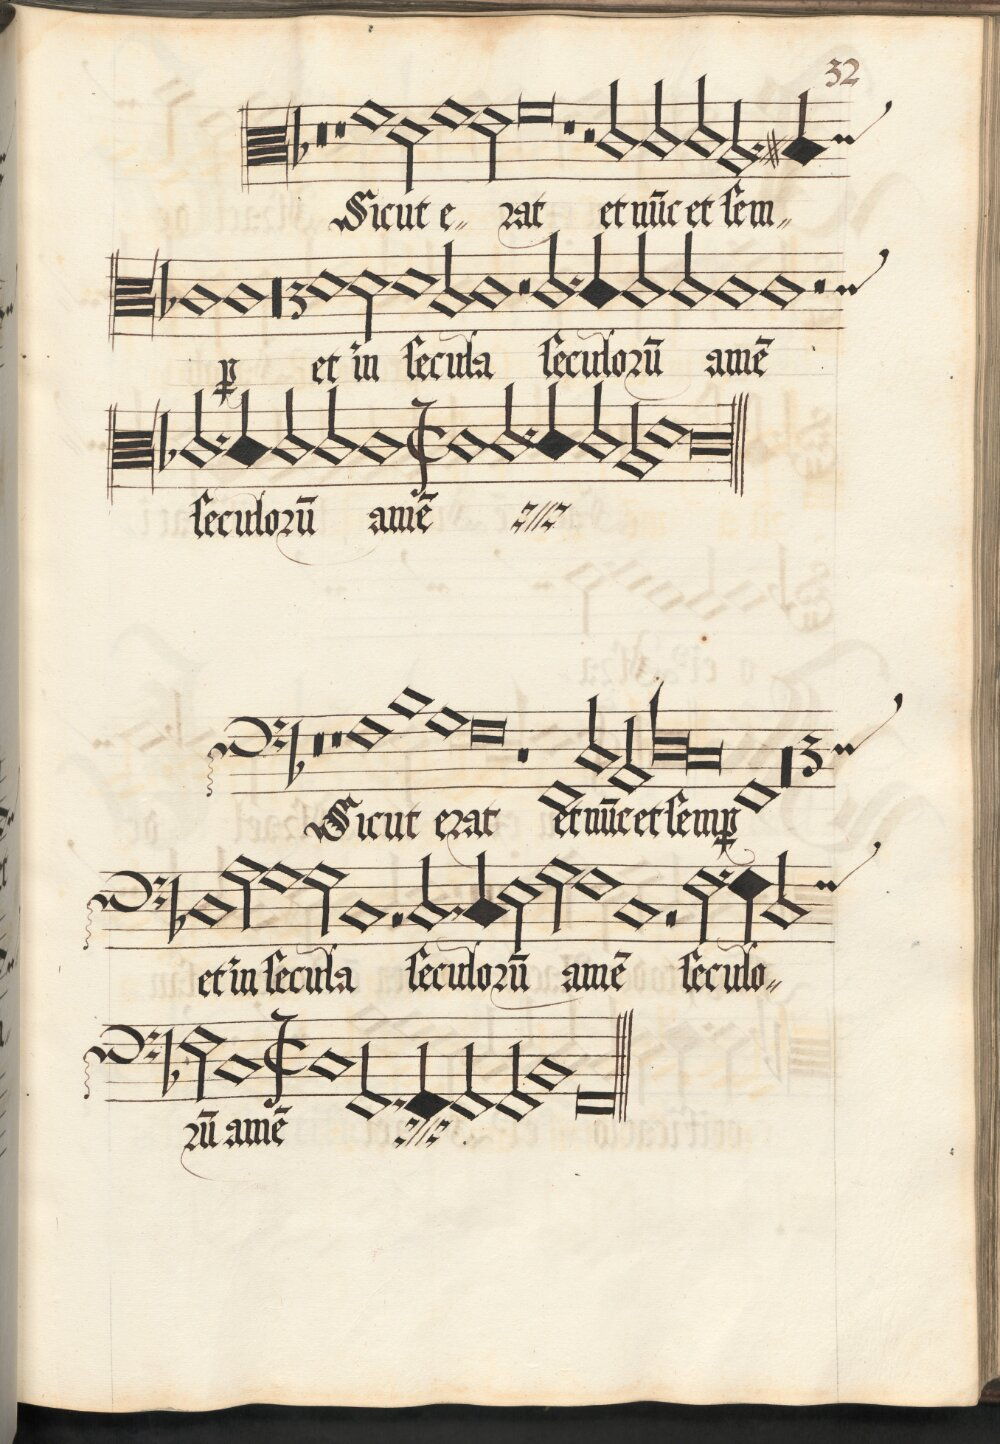 32
Sicut e„ rat et nūc et sem„
ꝑ et in secula seculorū amē
seculorū amē
Sicut erat et nūc et semꝑ
et in secula seculorū amē seculo„
rū amē